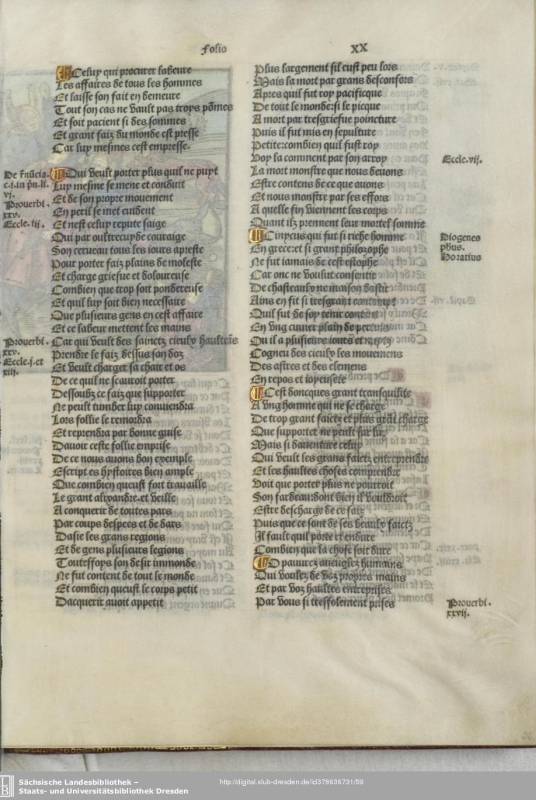 folio XX
Celuy qui procurer labeure
Les affaires de tous les hommes
Et laisse son fait en demeure
Tout son cas ne vault pas troys pōmes
Et soit pacient si des sommes
Et grant faiz du monde est presse
Car luy mesmes cest empresse.
Qui veult porter plus quil ne puyt
Luy mesme se mene et conduit
Et de son propre mouement
En peril se met cuident
Et nest celuy repute saige
Qui par oultrecuyde couraige
Son cerueau tous les iours apreste
Pour porter faiz plains de moleste
Et charge griefue et doloureuse
Combien que trop soit pondereuse
Et quil luy soit bien necessaire
Que plusieurs gens en cest affaire
Et ce labeur mettent les mains
Car qui veult des sainctz cieulx haultains
Prendre le faiz dessus son doz
Et veult charger sa chair et os
De ce quil ne scauroit porter
Dessoubz ce faiz que supporter
Ne peult tumber luy conuiendra
Lors follie se remordra
Et reprendra par bonne guise
Dauoir ceste follie emprise
De ce nous auons bon exemple
Escript es hystoires bien ample
Que combien queust fort trauaille
Le grant alixandre et veille
A conquerir de toutes pars
Par coups despees et de dars
Dasie les grans regions
Et de gens plusieurs legions
Touteffoys son desir immonde
Ne fut content de tout le monde
Et combien queust le corps petit
Dacquerir auoit appetit
De
c.i.in
vj.
Prouerbi.
xxv.
Eccle.iij.
Prouerbi.
xxv.
Eccle.j.et
xiij.
Plus largement sil eust peu lors
Mais la mort par grans desconfors
Apres quil fut roy pacifique
De tout le monde: si le picque
A mort par tresgriefue poincture
Puis il fut mis en sepulture
Petite: combien quil fust roy
Voy la comment par son arroy
La mort monstre que nous deuons
Estre contens de ce que auons
Et nous monstre par ses effors
A quelle fin viennent les corps
Quant ilz prennent leur mortel somme
Cinycus qui fut si riche homme
En grece et si grant philozophe
Ne fut iamais de ceste stophe
Car onc ne voulut consentir
De chasteaulx ne maison bastir
Ains en fit si tresgrant
Quil fut de soy tenir content
En vng cuuier plain de
Ou il a plusieurs iours et nuytz
Cogneu des cieulx les mouemens
Des astres et des elemens
En repos et ioyeusete
Cest doncques grant tranquilite
A vng homme qui ne se charge
De trop grant faictz et plus grāt charge
Que supporter ne peult sur luy
Mais si dauenture celuy
Qui veult les grans faictz entreprendre
Et les haultes choses comprendre
Voit que porter plus ne pourroit
Son fardeau: dont bien il vouldroit
Estre descharge de ce faiz
Puis que ce sont de ses beaulx faictz
Il fault quil porte et endure
Combien que la chose soit dure
O pauures aueuglez humains
Qui voulez de voz propres mains
Et par voz haultes entreprises
Par vous si treffolement prises
Eccle.vij.
Diogenes
phus.
Horatius
Prouerbi.
xxvij.
Sächsische Landesbibliothek –
Staats- und Universitätsbibliothek Dresden
http://digital.slub-dresden.de/id378636731/59